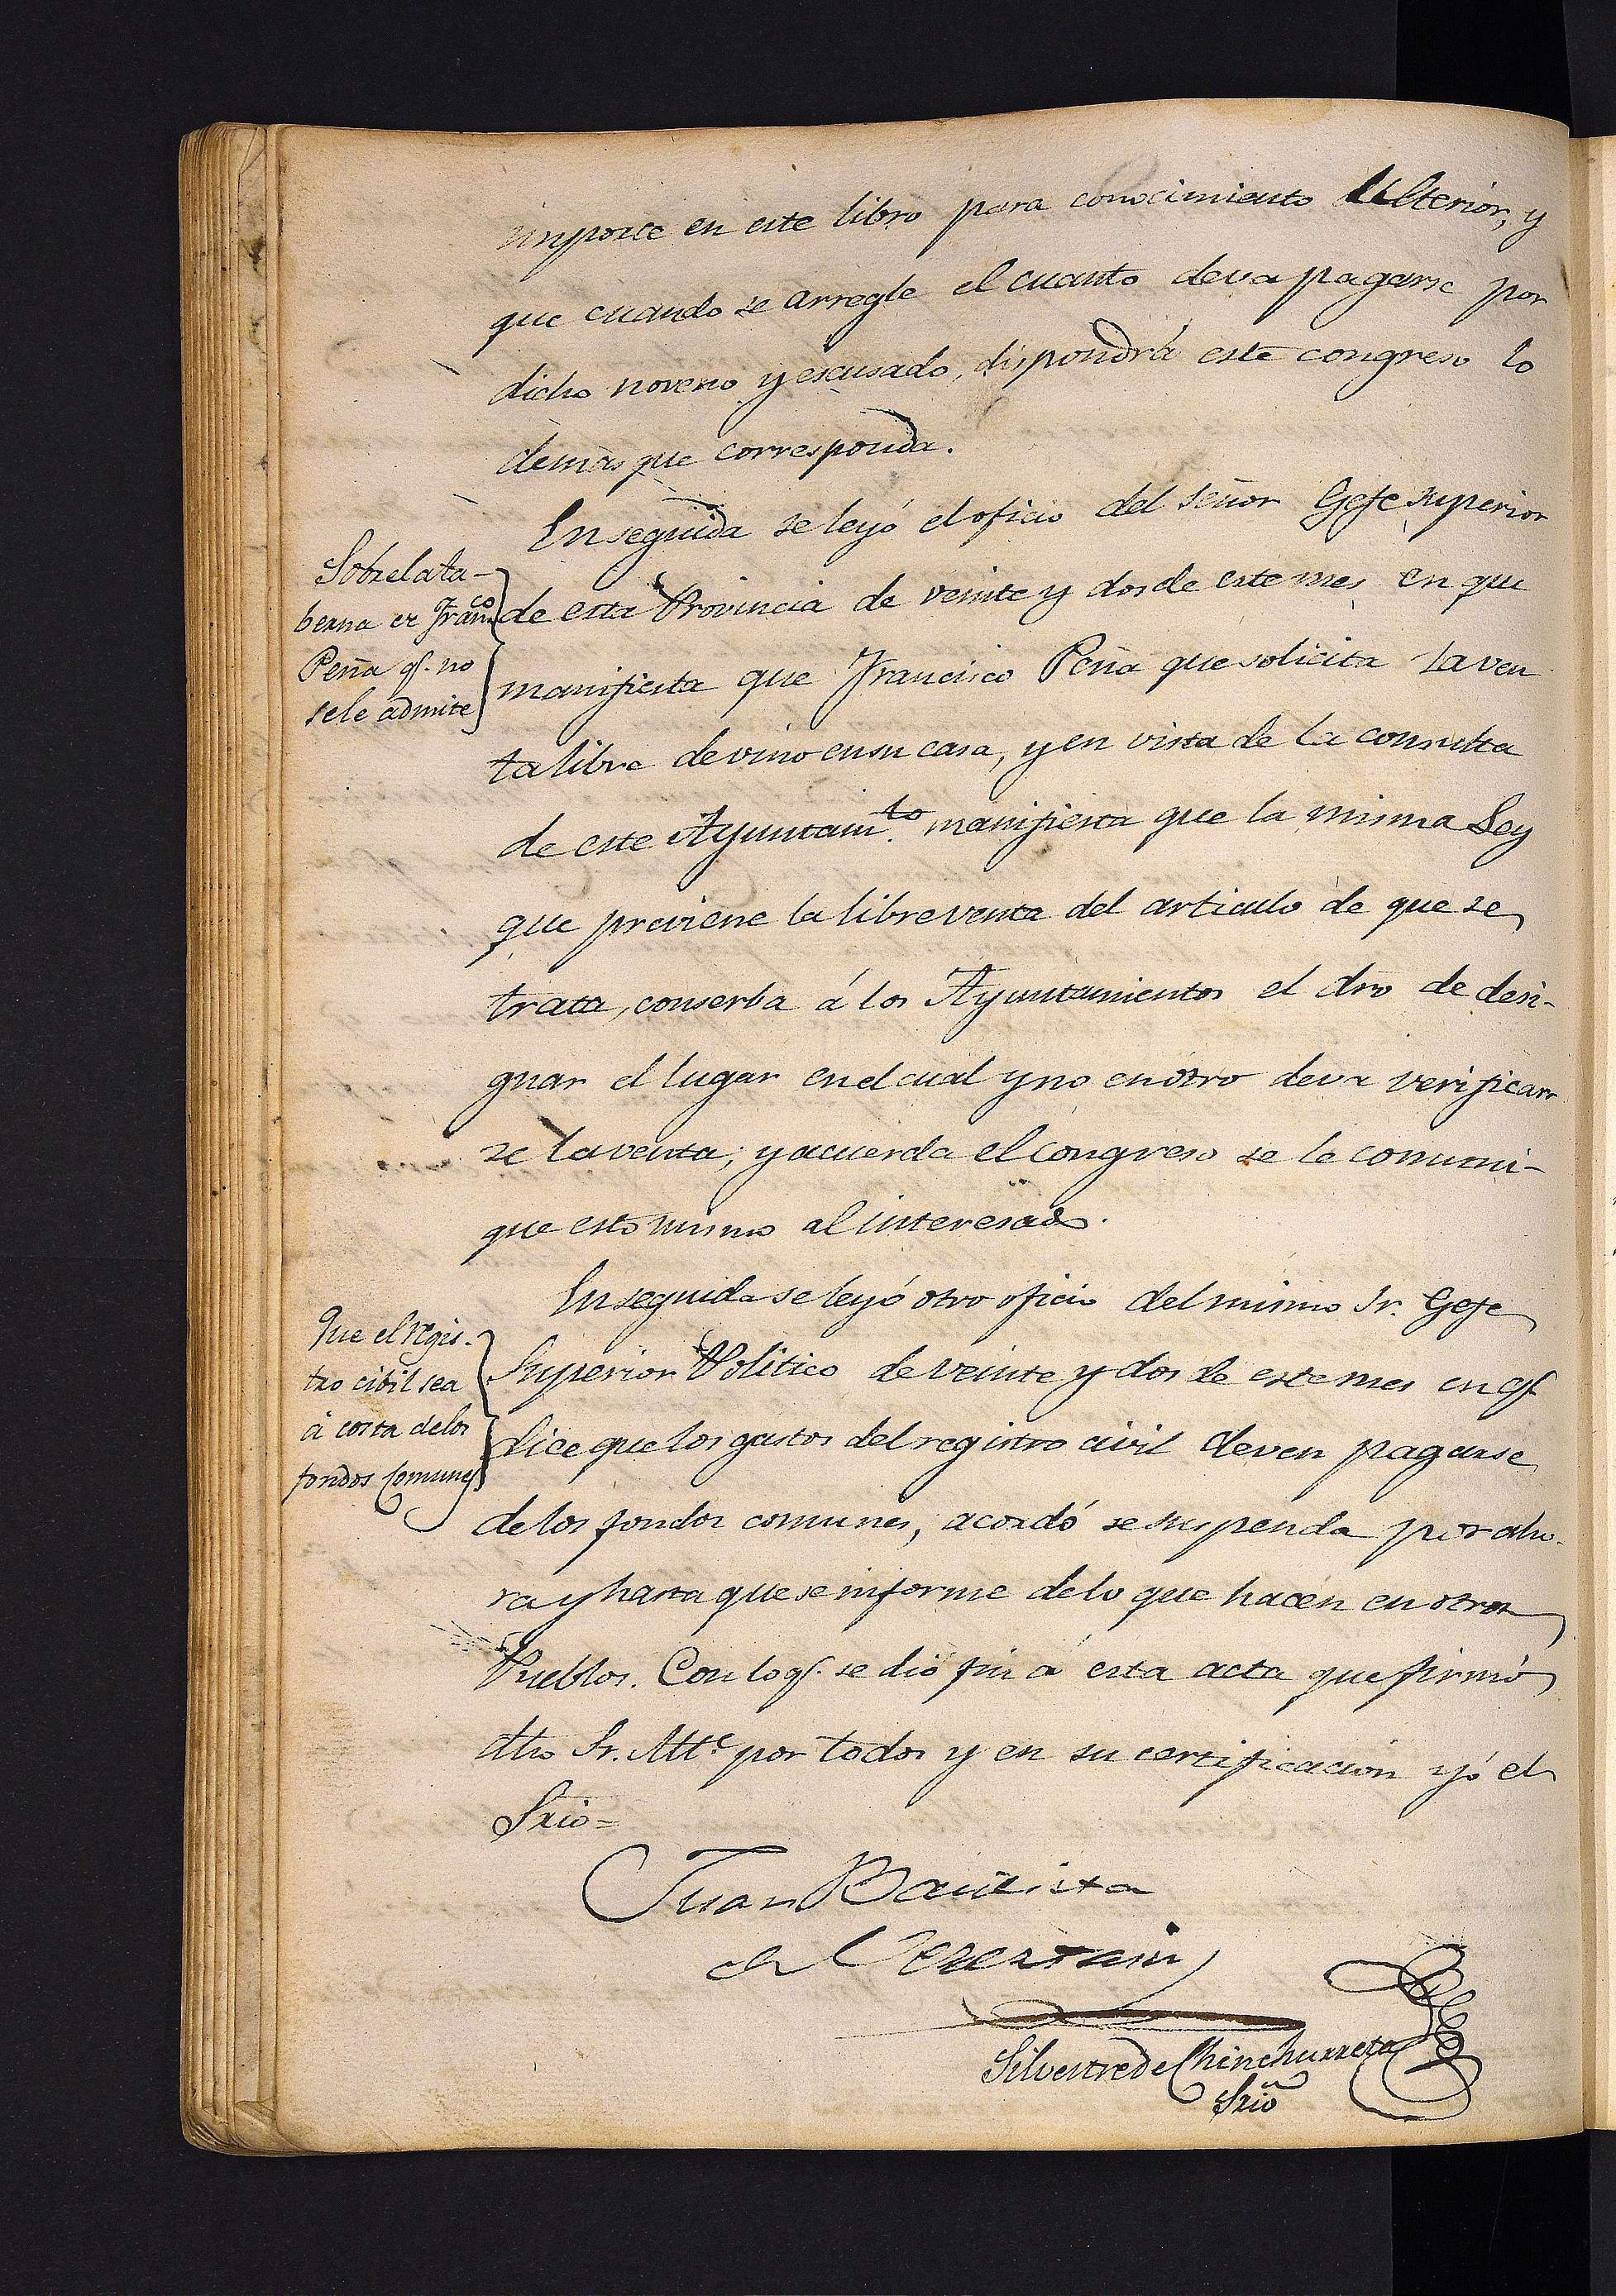 importe en este libro para conocimiento Ulterior, y
que cuando se arregle el cuanto deva pagarse por
dicho noveno y escusado, dispondrá este congreso lo
demas que corresponda.
En seguida se leyó el oficio del señor Gefe superior
Sobre la ta-
berna de Franco
Peña q. no
se le admite
de esta Provincia de veinte y dos de este mes en que
manifiesta que Francisco Peña que solicita la ven
ta libre de vino en su casa, y en vista de la consulta
de este Ayuntamto. manifiesta que la misma Ley
que previene la libre venta del articulo de que se
trata, conserba á los Ayuntamientos el dro de desi-
gnar el lugar en el cual y no en otro deva verificar
se la venta; y acuerda el congreso se le comuni-
que esto mismo al interesado.
En seguida se leyó otro oficio del mismo Sr. Gefe
Que el regis-
tro cibil sea
á costa de los
fondos Comunes
Superior Politico de veinte y dos de este mes en q
dice que los gastos del registro civil deven pagarse
de los fondos comunes, acordó se suspenda por aho-
ra y hasta que se informe de lo que hacen en otros
Pueblos. Con lo q. se dió fin á esta acta que firmó
dho Sr. Alte por todos y en su certificacion yó el
Srio=
Juan Bautista
de
Silvestre de Chinchurreta
Srio